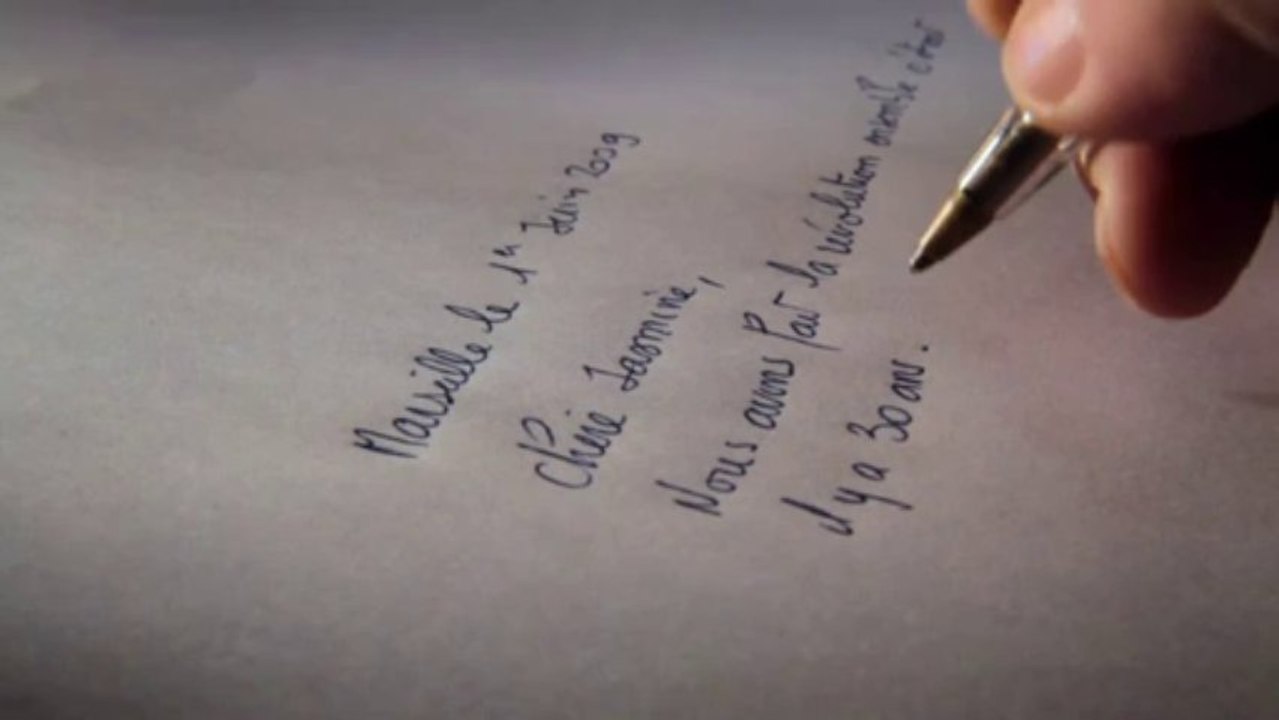 Marseille le 1er Juin 2009
Chérie Jasmine,
Nous avons fait la révolution ensemble c'était
il y a 30 ans.